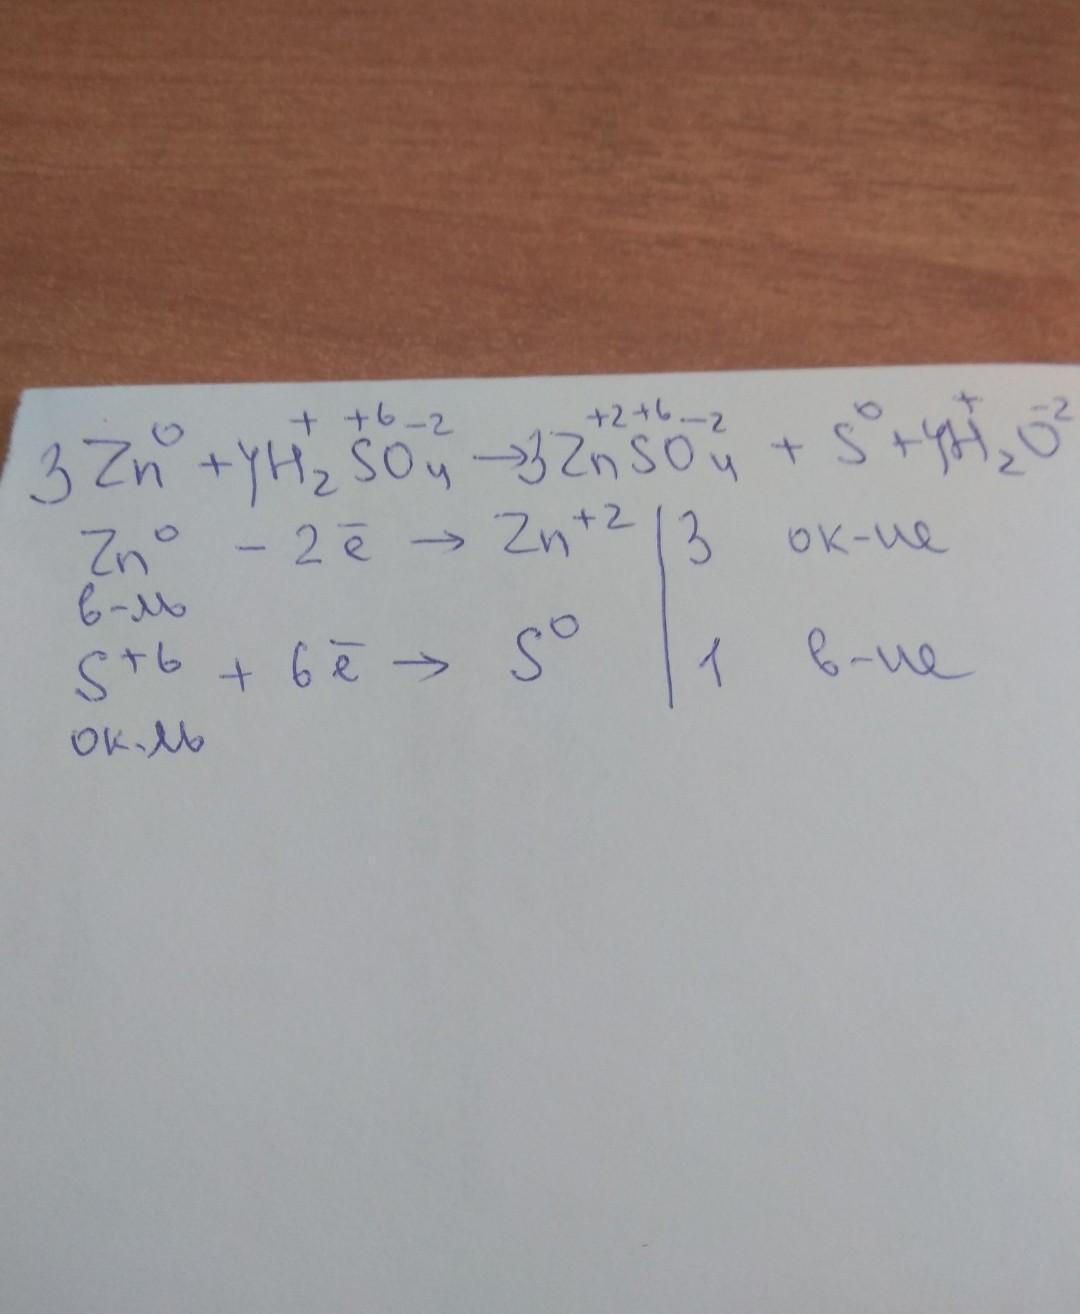 3Zn⁰ + 4H₂⁺S⁺⁶O₄⁻² → 3Zn⁺²S⁺⁶O₄⁻² + S⁰ + 4H₂⁺O⁻²
Zn⁰ - 2ē → Zn⁺² | 3 ок-ие
в-ль
S⁺⁶ + 6ē → S⁰ | 1 в-ие
ок-ль